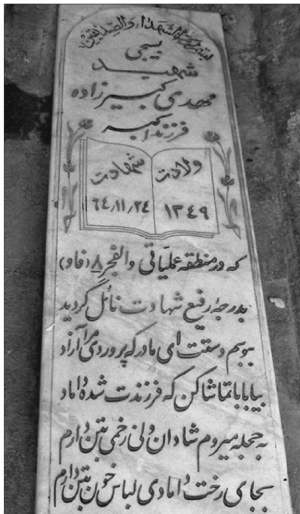 بسم رب الشهداء والصدیقین
بسیجی
شهید
مهدی کبیرزاده
فرزند اکبر
ولادت شهادت
۱۳۴۹ ۶۴/۱۱/۲۴
که در منطقه عملیاتی والفجر ۸ (فاو)
بدرجهٔ رفیع شهادت نائل گردید
ببوسم دستت ای مادر که پروردی مرا آزاد
بیا بابا تماشا کن که فرزندت شده داماد
به حجله میروم شادان ولی زخمی بتن دارم
بجای رخت دامادی لباس خون بتن دارم